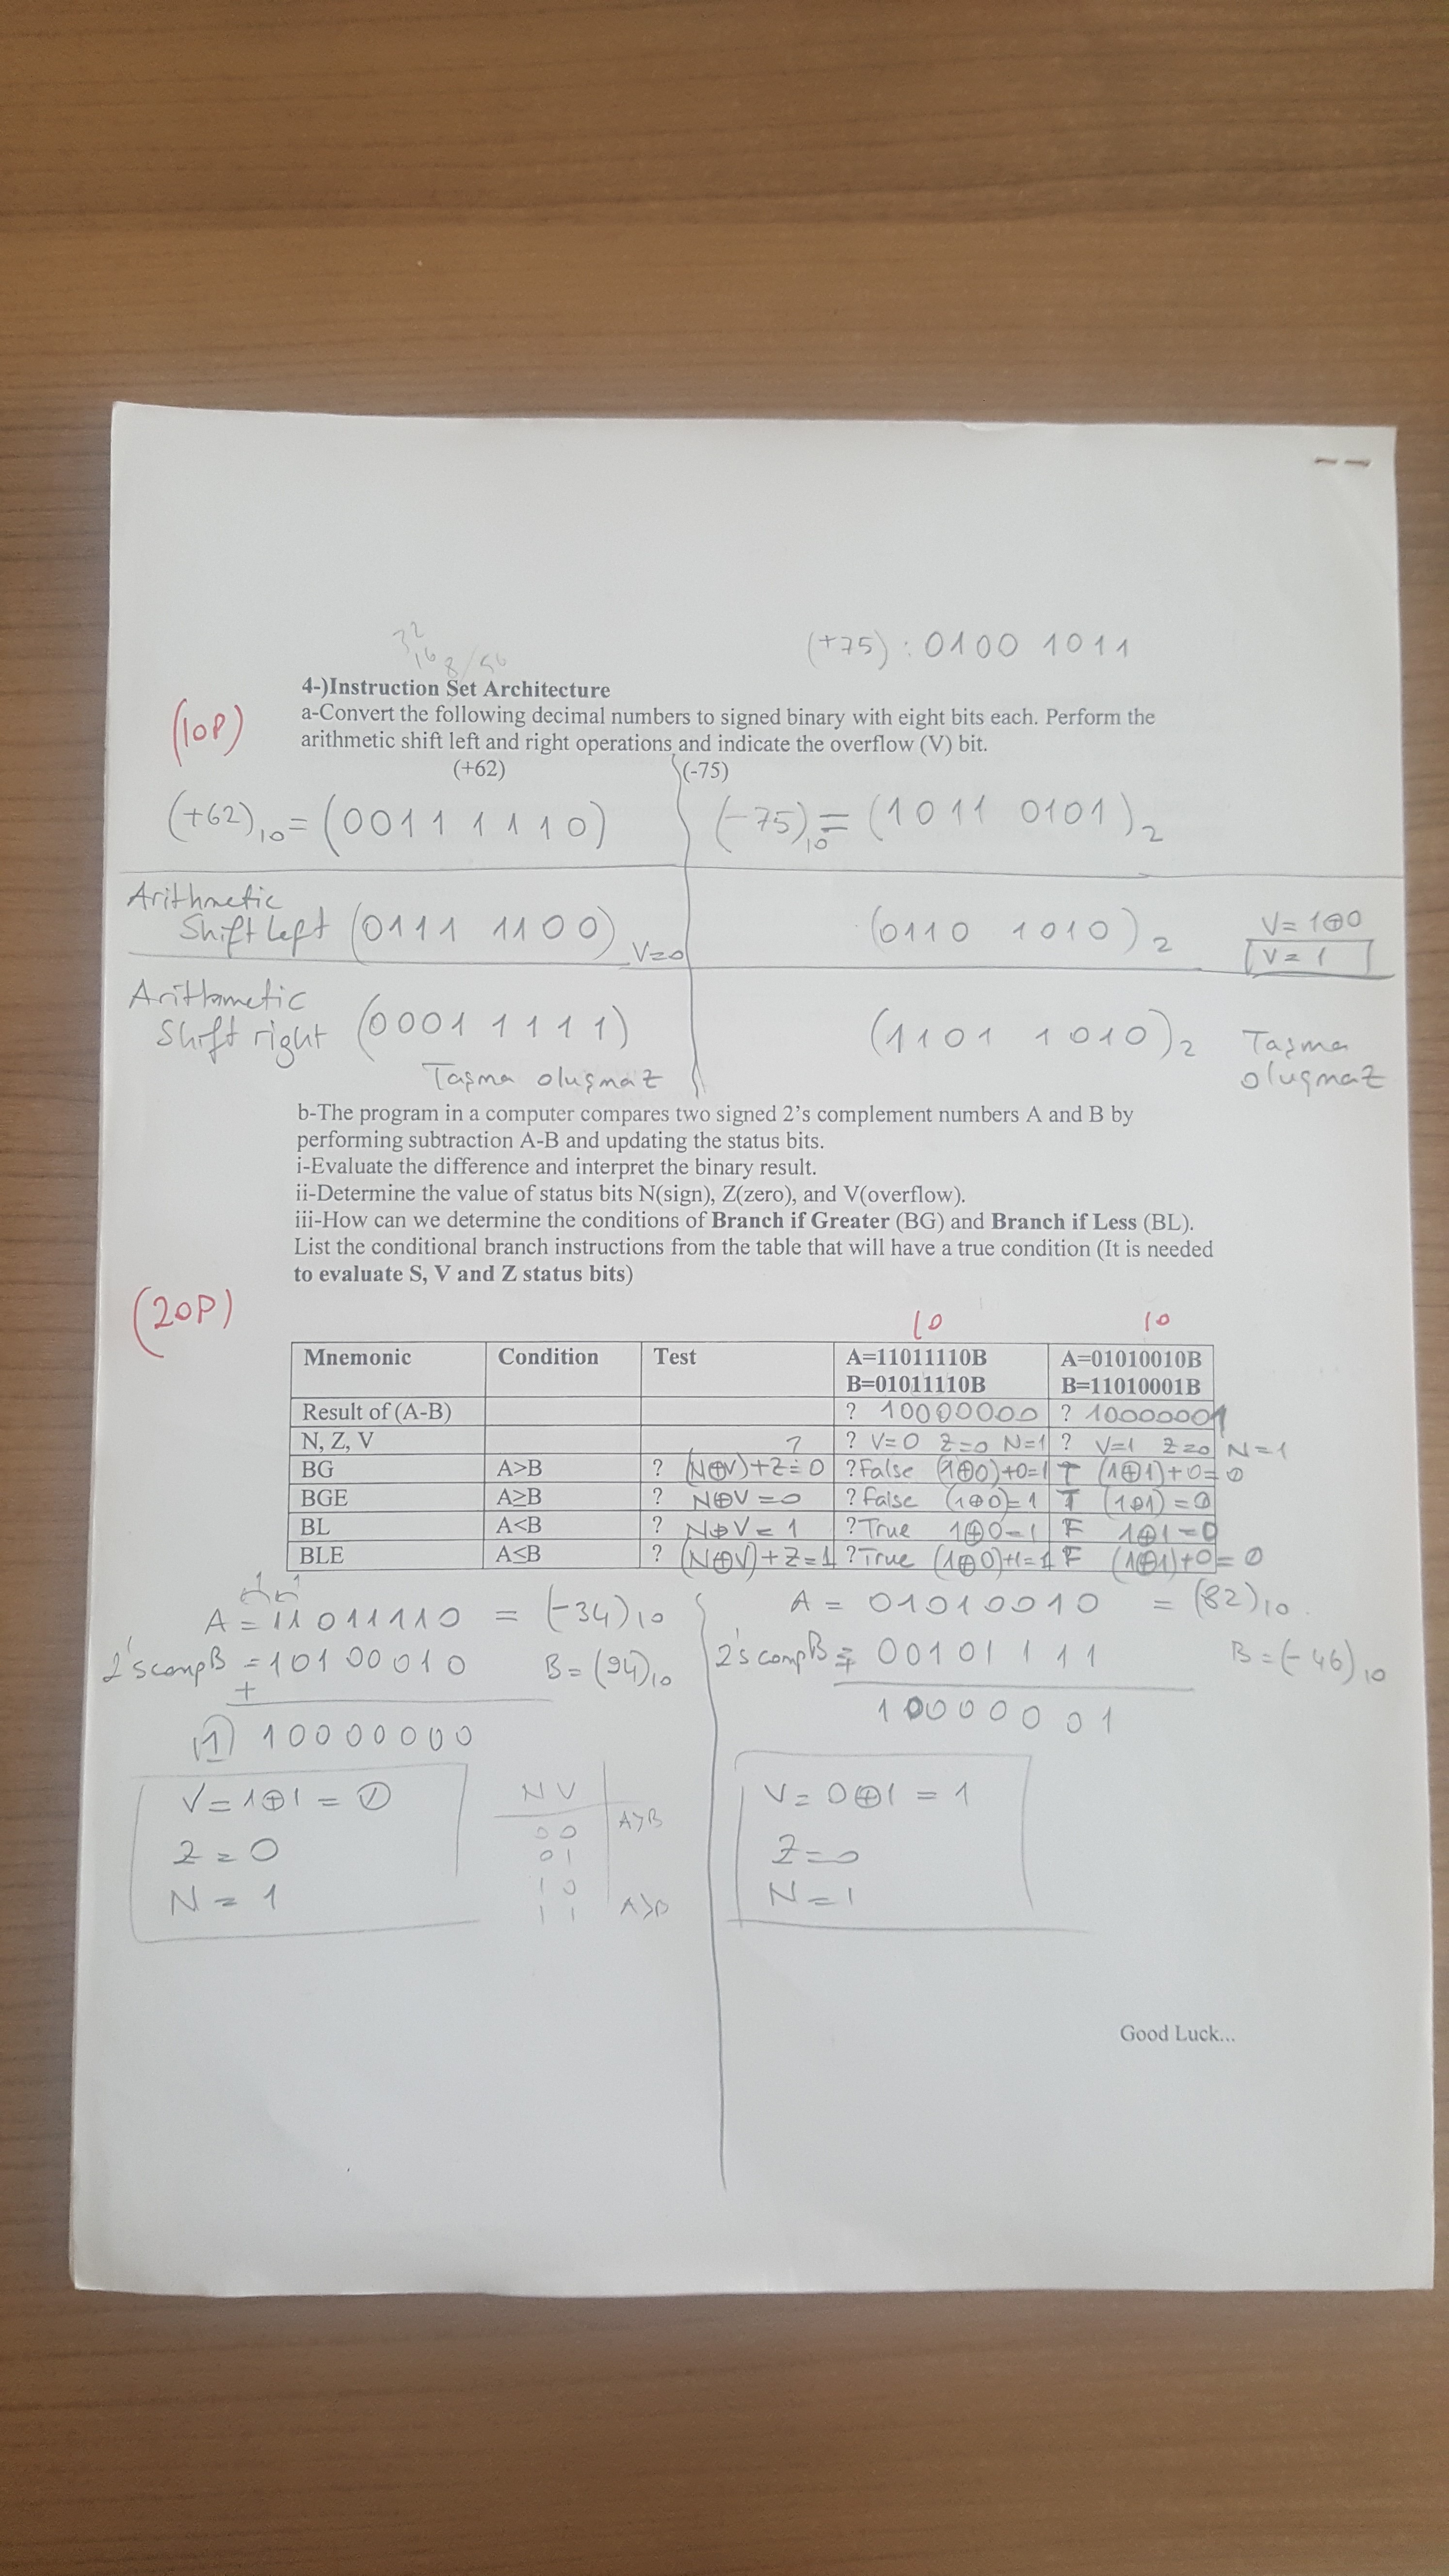 32
16
8/56
(+75) : 0100 1011
4-)Instruction Set Architecture
(10P)
a-Convert the following decimal numbers to signed binary with eight bits each. Perform the
arithmetic shift left and right operations and indicate the overflow (V) bit.
(+62) (-75)
(+62)10 = (0011 1 1 1 0) (-75)10 = (1011 0101)2
Arithmetic
Shift left (0111 1100) V=0 (0110 1010)2 V= 1⊕0
V= 1
Arithmetic
Shift right (0001 1 1 1 1) (1101 1010)2 Taşma
Taşma oluşmaz oluşmaz
b-The program in a computer compares two signed 2's complement numbers A and B by
performing subtraction A-B and updating the status bits.
i-Evaluate the difference and interpret the binary result.
ii-Determine the value of status bits N(sign), Z(zero), and V(overflow).
iii-How can we determine the conditions of Branch if Greater (BG) and Branch if Less (BL).
List the conditional branch instructions from the table that will have a true condition (It is needed
to evaluate S, V and Z status bits)
(20P)
10 10
Mnemonic Condition Test A=11011110B A=01010010B
B=01011110B B=11010001B
Result of (A-B) ? 10000000 ? 10000001
N, Z, V ? ? V=0 Z=0 N=1 ? V=1 Z=0 N=1
BG A>B ? (N⊕V)+Z=0 ?False (1⊕0)+0=1 T (1⊕1)+0=0
BGE A≥B ? N⊕V=0 ?False (1⊕0)=1 T (1⊕1)=0
BL A<B ? N⊕V=1 ?True 1⊕0=1 F 1⊕1=0
BLE A≤B ? (N⊕V)+Z=1 ?True (1⊕0)+1=1 F (1⊕1)+0=0
1 1
A = 11011110 = (-34)10 A = 01010010 = (82)10
2'scompB = 10100010 B=(94)10 2'scompB = 00101 1 11 B=(-46)10
+ +
(1) 10000000 10000001
V=1⊕1=0 N V V=0⊕1=1
0 0 A>B
Z=0 0 1 Z=0
1 0
N=1 1 1 A>B N=1
Good Luck...